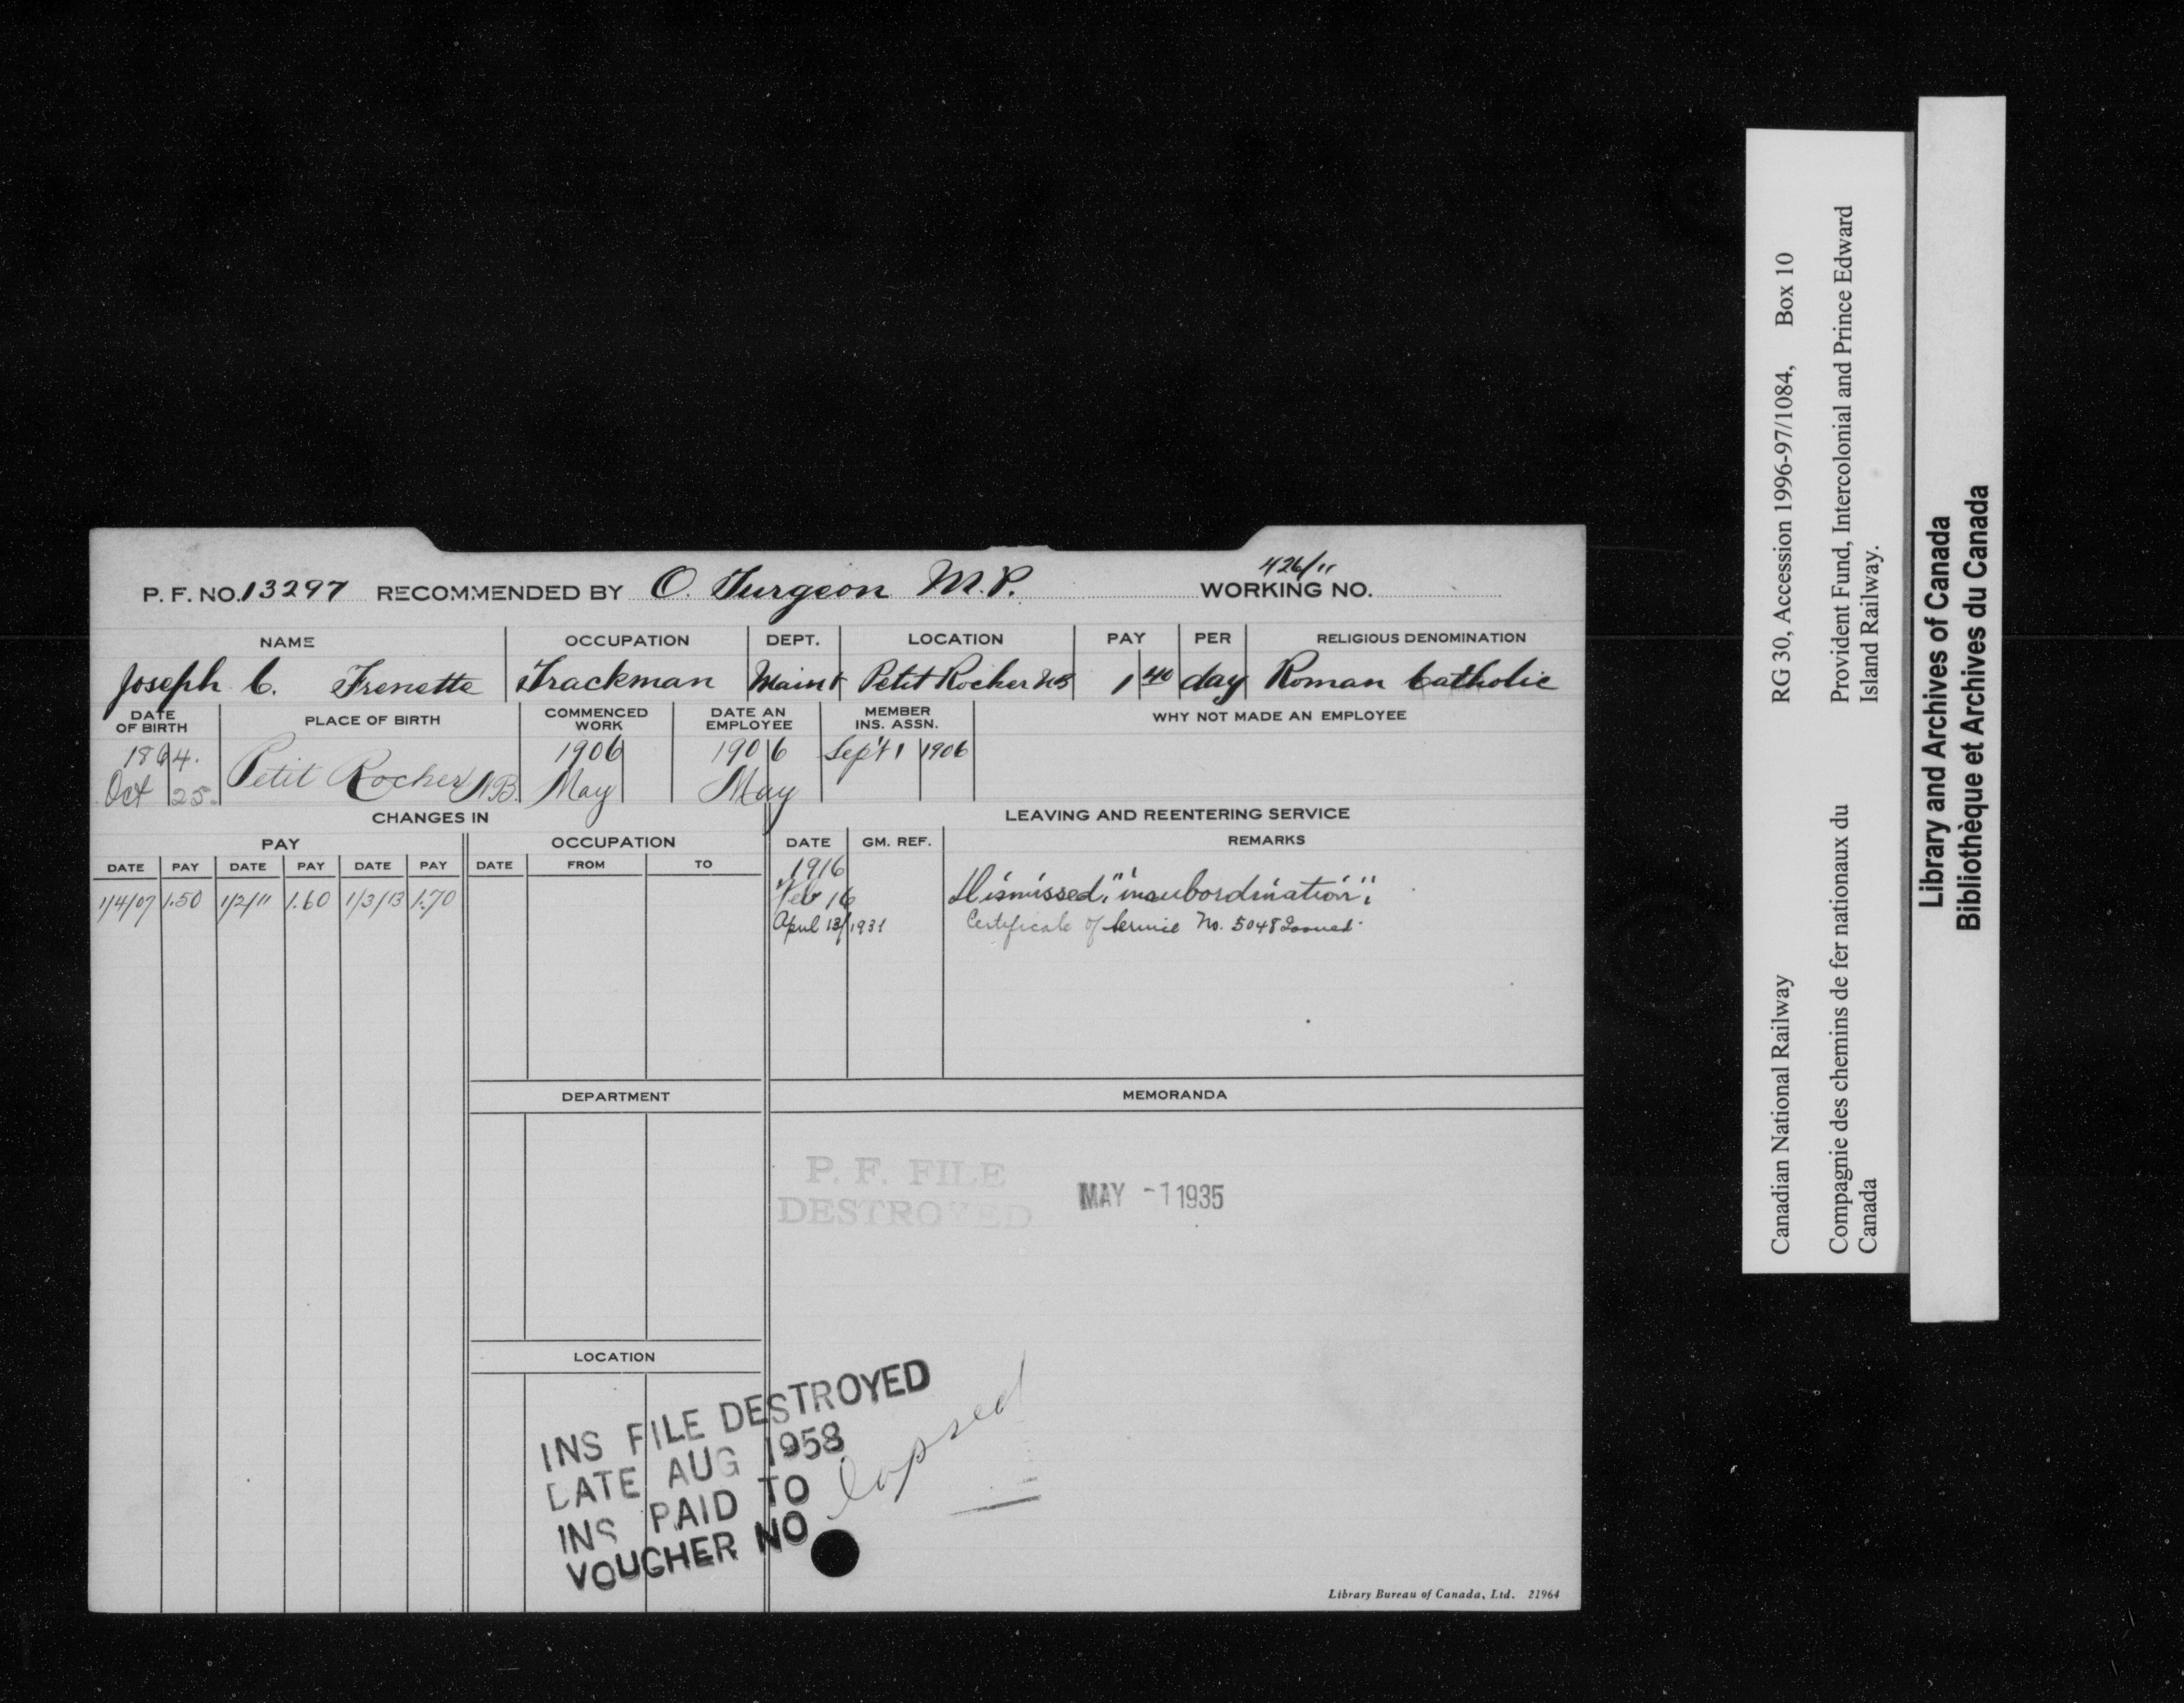 P. F. NO. 13297 RECOMMENDED BY O. Turgeon M.P. WORKING NO. 426/11
NAME OCCUPATION DEPT. LOCATION PAY PER RELIGIOUS DENOMINATION
Joseph C. Frenette Trackman Maint Petit Rocher NB 1 40 day Roman Catholic
DATE OF BIRTH PLACE OF BIRTH COMMENCED WORK DATE AN EMPLOYEE MEMBER INS. ASSN. WHY NOT MADE AN EMPLOYEE
1864. 1906 1906 Sept 1 1906
Oct 25. Petit Rocher N.B. May May
CHANGES IN LEAVING AND REENTERING SERVICE
PAY OCCUPATION DATE GM. REF. REMARKS
DATE PAY DATE PAY DATE PAY DATE FROM TO
1916
1/4/07 1.50 1/2/11 1.60 1/3/13 1.70 Feb 16 Dismissed, "insubordination".
April 13/1931 Certificate of Service No. 5048 Issued.
DEPARTMENT MEMORANDA
P. F. FILE
DESTROYED
MAY -1 1935
LOCATION
INS FILE DESTROYED
DATE AUG 1958
INS PAID TO
VOUCHER NO
lapsed
Library Bureau of Canada, Ltd. 21964
Canadian National Railway RG 30, Accession 1996-97/1084, Box 10
Compagnie des chemins de fer nationaux du Canada
Provident Fund, Intercolonial and Prince Edward Island Railway.
Library and Archives of Canada
Bibliothèque et Archives du Canada